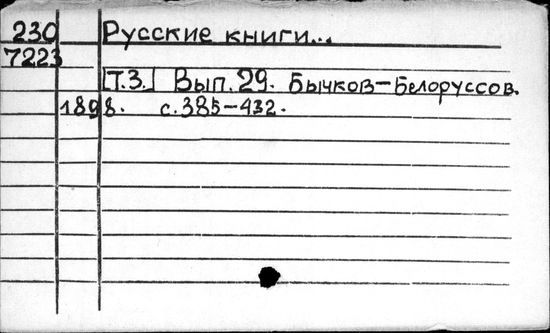 230 Русские книги...
7223
[Т.3.] Вып. 29. Бычков-Белоруссов.
1898. с.385-432.